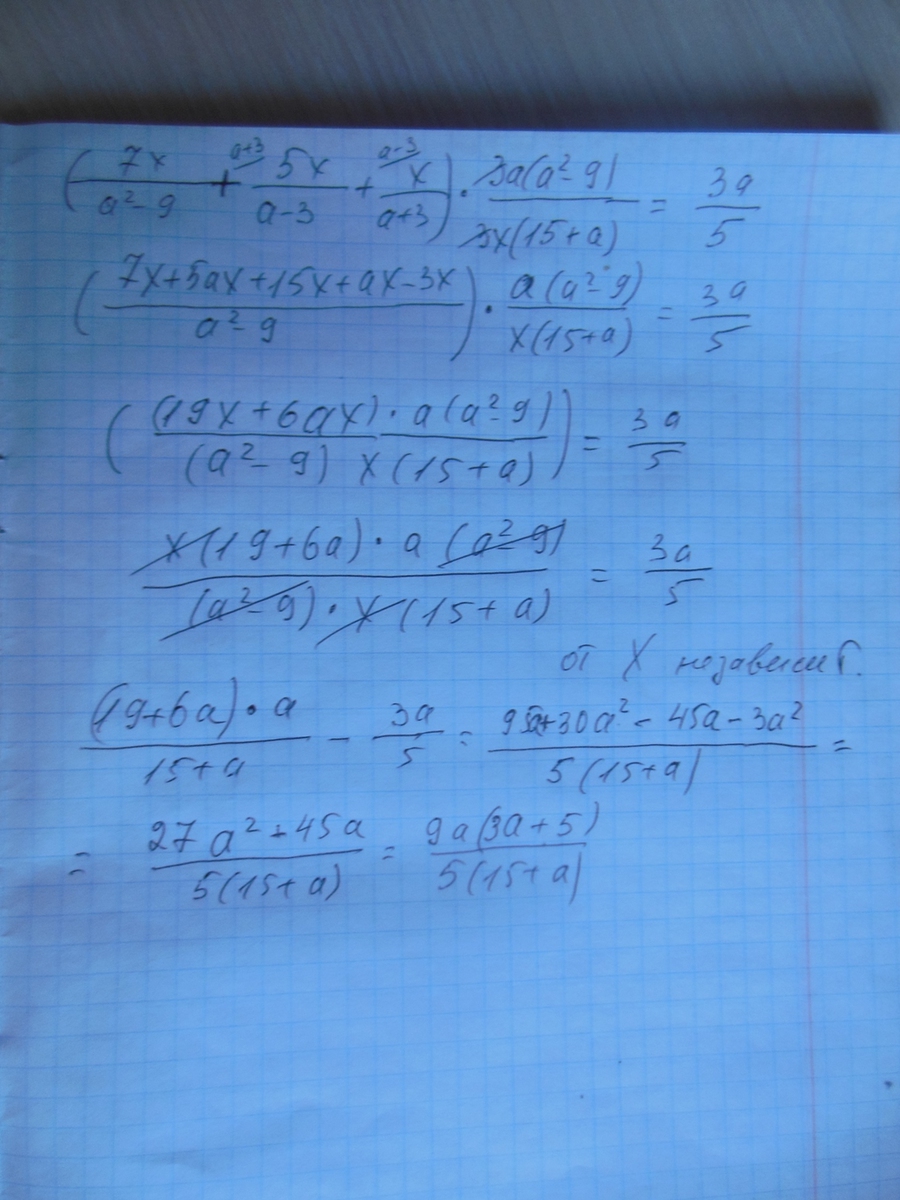 (7x/(a²-9) + a+3 5x/(a-3) + a-3 x/(a+3)) · 3a(a²-9)/3x(15+a) = 3a/5
((7x+5ax+15x+ax-3x)/(a²-9)) · a(a²-9)/x(15+a) = 3a/5
((19x+6ax)·a(a²-9)/(a²-9) x(15+a)) = 3a/5
x(19+6a)·a(a²-9)/(a²-9)·x(15+a) = 3a/5
от X независит.
(19+6a)·a/15+a - 3a/5 = 95a+30a²-45a-3a²/5(15+a) =
= 27a²+45a/5(15+a) = 9a(3a+5)/5(15+a)